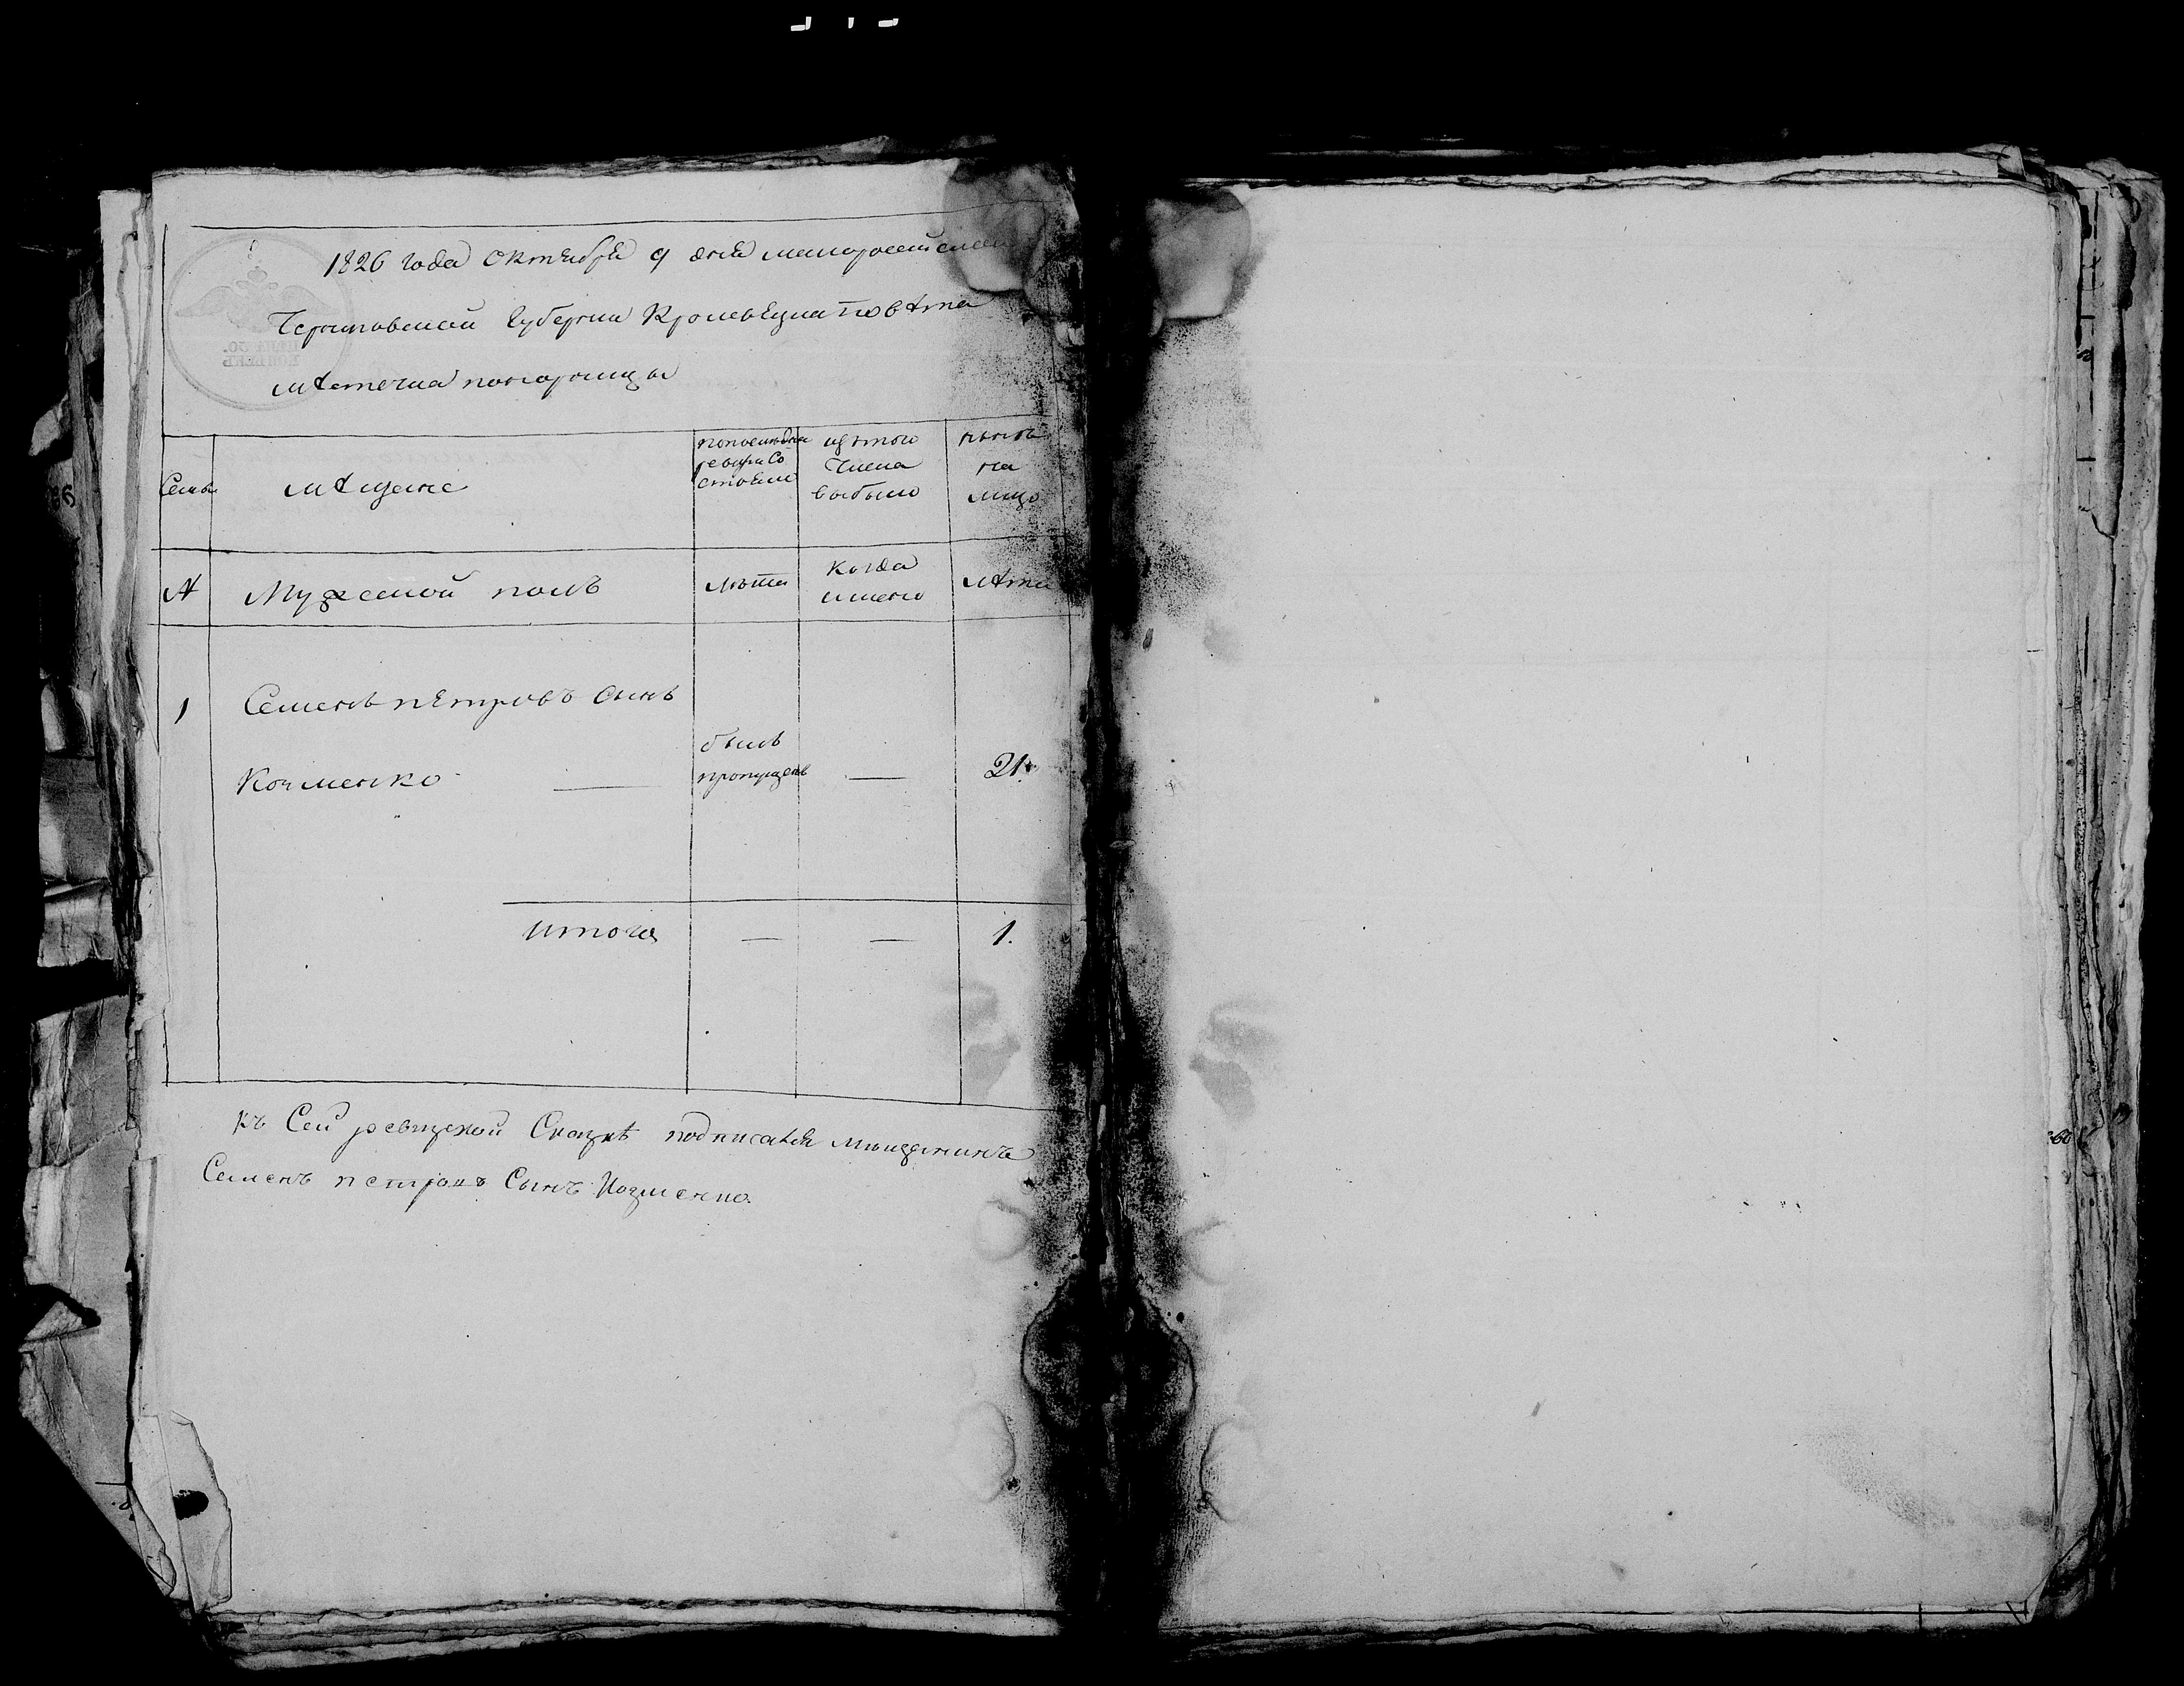 1826 года октября 9 дня малороссийской
Черниговской губернии Кролевецка повѣта
мѣстечка понорницы
Семьи
мѣщане
по последней ревизии Состояли
изъ того Числа выбыло
нынѣ на лицо
№
Мужеской полъ
лѣта
Когда имено
лѣта
1
Семенъ петровъ сынъ
былъ
пропущенъ
—
21.
итого
—
—
1.
къ Сей ревизской Сказкѣ подписался мѣщанинъ
Семенъ петровъ Сынъ